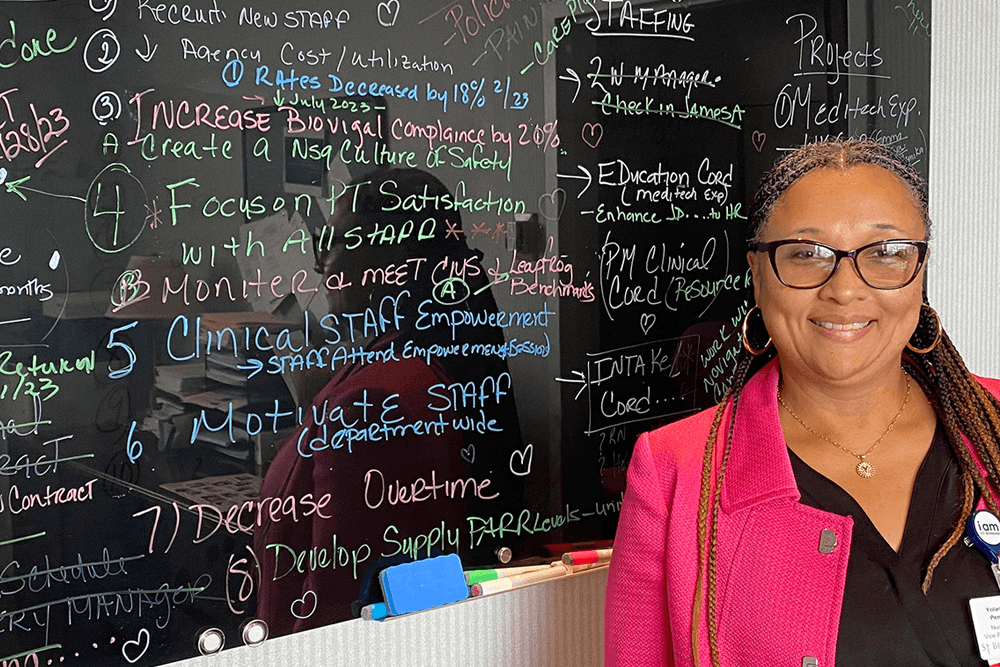 Recruit New STAFF
Core
②
Agency Cost / Utilization
① Rates Decreased by 18% 2/23
July 2023
③ INCREASE Biovigal Complaince by 20%
A Create a Nsg Culture of Safety
4 Focus on PT Satisfaction
with All STAFF
B Moniter & MEET CMS &
A
Leapfrog
Benchmarks
5 Clinical STAFF Empowerment
STAFF Attend Empowerment Session
6 Motivate STAFF
(department wide
7) Decrease Overtime
8) Develop Supply PARR Levels - unit
28/23
months
Returned
1/23
Contract
Schedule
MANAGER
CARE
STAFFING
2 N M Manager
Check in James A
EDucation Cord
(meditech Exp)
- Enhance JD.... to HR
(PM Clinical
Cord (Resource
INTAKE
Cord ....
2 RN
WORK W/
Projects
① Meditech Exp.
here
i am
Yolan
Pen
Nur
Vice P